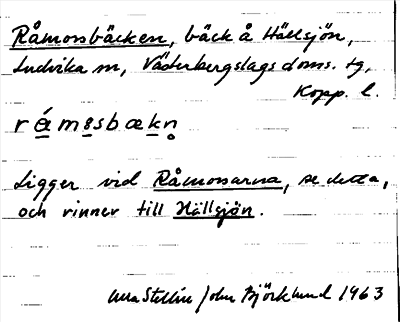 Råmossbäcken, bäck å Hällsjön,
Ludvika sn, Västerbergslags doms. tg,
Kopp. l.
Ligger vid Råmossarna, se detta,
och rinner till Hällsjön.
John Björklund 1963